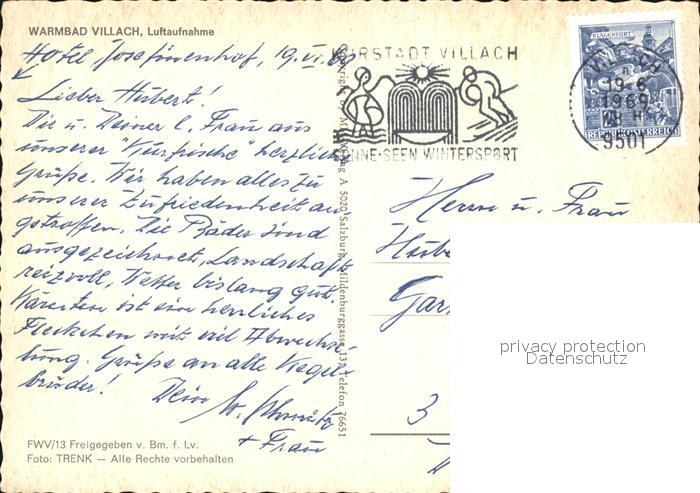 WARMBAD VILLACH, Luftaufnahme
Hotel Josefinenhof, 19.VI.69
Lieber Hubert!
Dir u. Deiner l. Frau aus
unserer "Kurfrische" herzliche
Grüße. Wir haben alles zu
unserer Zufriedenheit an-
getroffen. Die Bäder sind
ausgezeichnet, Landschaft
reizvoll, Wetter bislang gut.
Kärnten ist ein herrliches
Fleckchen mit viel Abwechs-
lung. Grüße an alle Kegel-
brüder!
Dein
+ Frau
FWV/13 Freigegeben v. Bm. f. Lv.
Foto: TRENK — Alle Rechte vorbehalten
A 5020 Salzburg, Mildenburggasse 13, Telefon 76651
KURSTADT VILLACH
SONNE·SEEN WINTERSPORT
KLAGENFORT
REPUBLIK ÖSTERREICH
VILLACH
19-6
1969
9501
Herrn u. Frau
3
privacy protection
Datenschutz